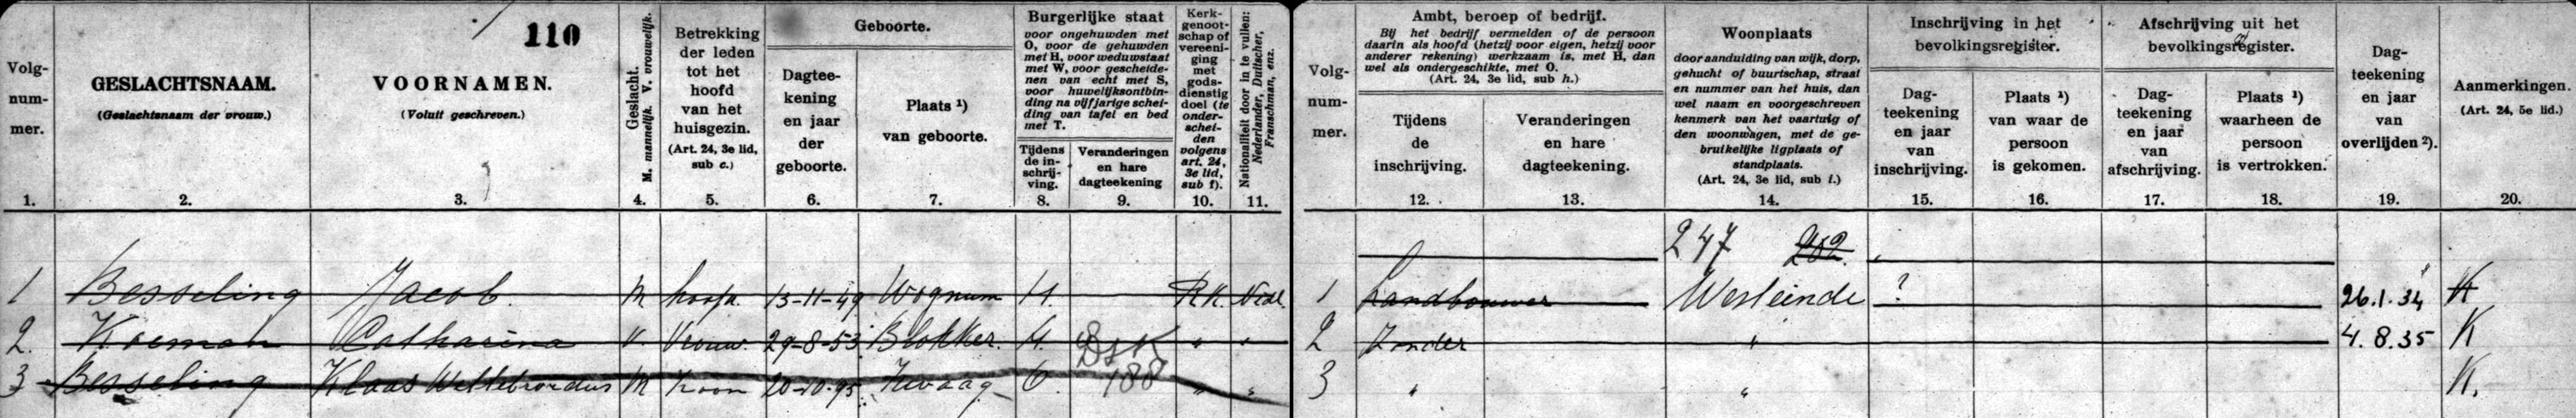 110
Volg-
num-
mer.
1.
GESLACHTSNAAM.
(Geslachtsnaam der vrouw.)
2.
VOORNAMEN.
(Voluit geschreven.)
3.
Geslacht.
M. mannelijk. V. vrouwelijk.
4.
Betrekking
der leden
tot het
hoofd
van het
huisgezin.
(Art. 24, 3e lid,
sub c.)
5.
Geboorte.
Dagtee-
kening
en jaar
der
geboorte.
6.
Plaats ¹)
van geboorte.
7.
Burgerlijke staat
voor ongehuwden met
O, voor de gehuwden
met H, voor weduwstaat
met W, voor gescheide-
nen van echt met S,
voor huwelijksontbin-
ding na vijfjarige schei-
ding van tafel en bed
met T.
Tijdens
de in-
schrij-
ving.
8.
Veranderingen
en hare
dagteekening
9.
Kerk-
genoot-
schap of
vereeni-
ging
met
gods-
dienstig
doel (te
onder-
schei-
den
volgens
art. 24,
3e lid,
sub f).
10.
Nationaliteit door in te vullen:
Nederlander, Duitscher,
Franschman, enz.
11.
Volg-
num-
mer.
Ambt, beroep of bedrijf.
Bij het bedrijf vermelden of de persoon
daarin als hoofd (hetzij voor eigen, hetzij voor
anderer rekening) werkzaam is, met H, dan
wel als ondergeschikte, met O.
(Art. 24, 3e lid, sub h.)
Tijdens
de
inschrijving.
12.
Veranderingen
en hare
dagteekening.
13.
Woonplaats
door aanduiding van wijk, dorp,
gehucht of buurtschap, straat
en nummer van het huis, dan
wel naam en voorgeschreven
kenmerk van het vaartuig of
den woonwagen, met de ge-
bruikelijke ligplaats of
standplaats.
(Art. 24, 3e lid, sub i.)
14.
Inschrijving in het
bevolkingsregister.
Dag-
teekening
en jaar
van
inschrijving.
15.
Plaats ¹)
van waar de
persoon
is gekomen.
16.
Afschrijving uit het
bevolkingsregister.
Dag-
teekening
en jaar
van
afschrijving.
17.
Plaats ¹)
waarheen de
persoon
is vertrokken.
18.
Dag-
teekening
en jaar
van
overlijden ²).
19.
Aanmerkingen.
(Art. 24, 5e lid.)
20.
247 252.
1 Besseling Jacob. M hoofd. 13-11-49 Wognum H. R.K. Nedl. 1 Landbouwer Westeinde ? 26.1.34 K
2. Koeman Catharina V. Vrouw. 29-8-53 Blokker. H. " " 2 Zonder " 4.8.35 K
3 Besseling Klaas Willebrordus M Zoon 20-10-95 Zwaag O. 188 " " 3 " " K.